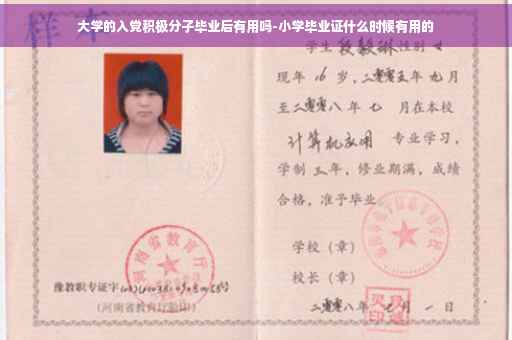 大学的入党积极分子毕业后有用吗-小学毕业证什么时候有用的
样本
学生段毅琳性别女
现年16岁，二零零五年九月
至二零零八年七月在本校
计算机应用 专业学习，
学制三年，修业期满，成绩
合格，准予毕业。
学校（章）
校长（章）
二零零八年七月一日
河南省教育厅
豫教职专证字
(河南省教育厅验印)